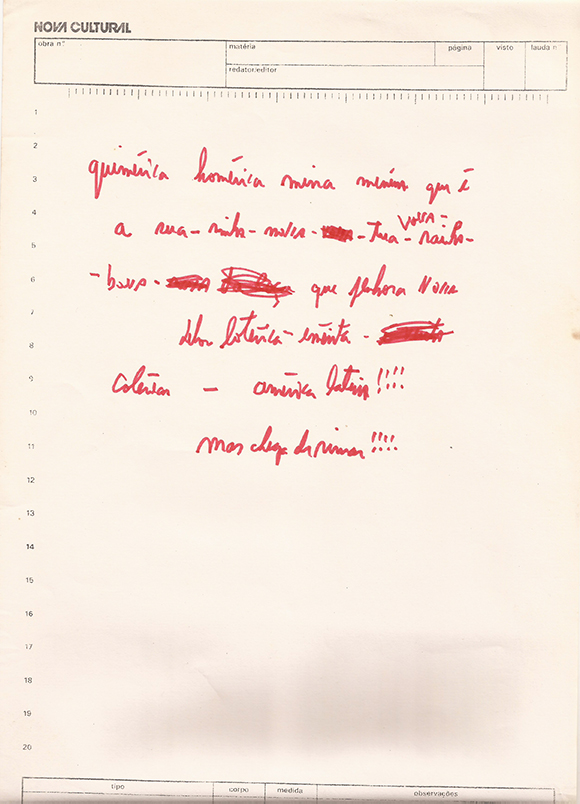 NOVA CULTURAL
obra n.º
matéria
página
visto
lauda n
redator/editor
1
2
quimérica homérica mina menina que é
3
4
a sua - minha - nossa - tua - vossa - rainha -
5
- bova - que penhora Nova
6
7
loteérica - emérita -
8
colérica - américa latina!!!!
9
10
mas chega de rimar!!!!
11
12
13
14
15
16
17
18
19
20
tipo
corpo
medida
observações